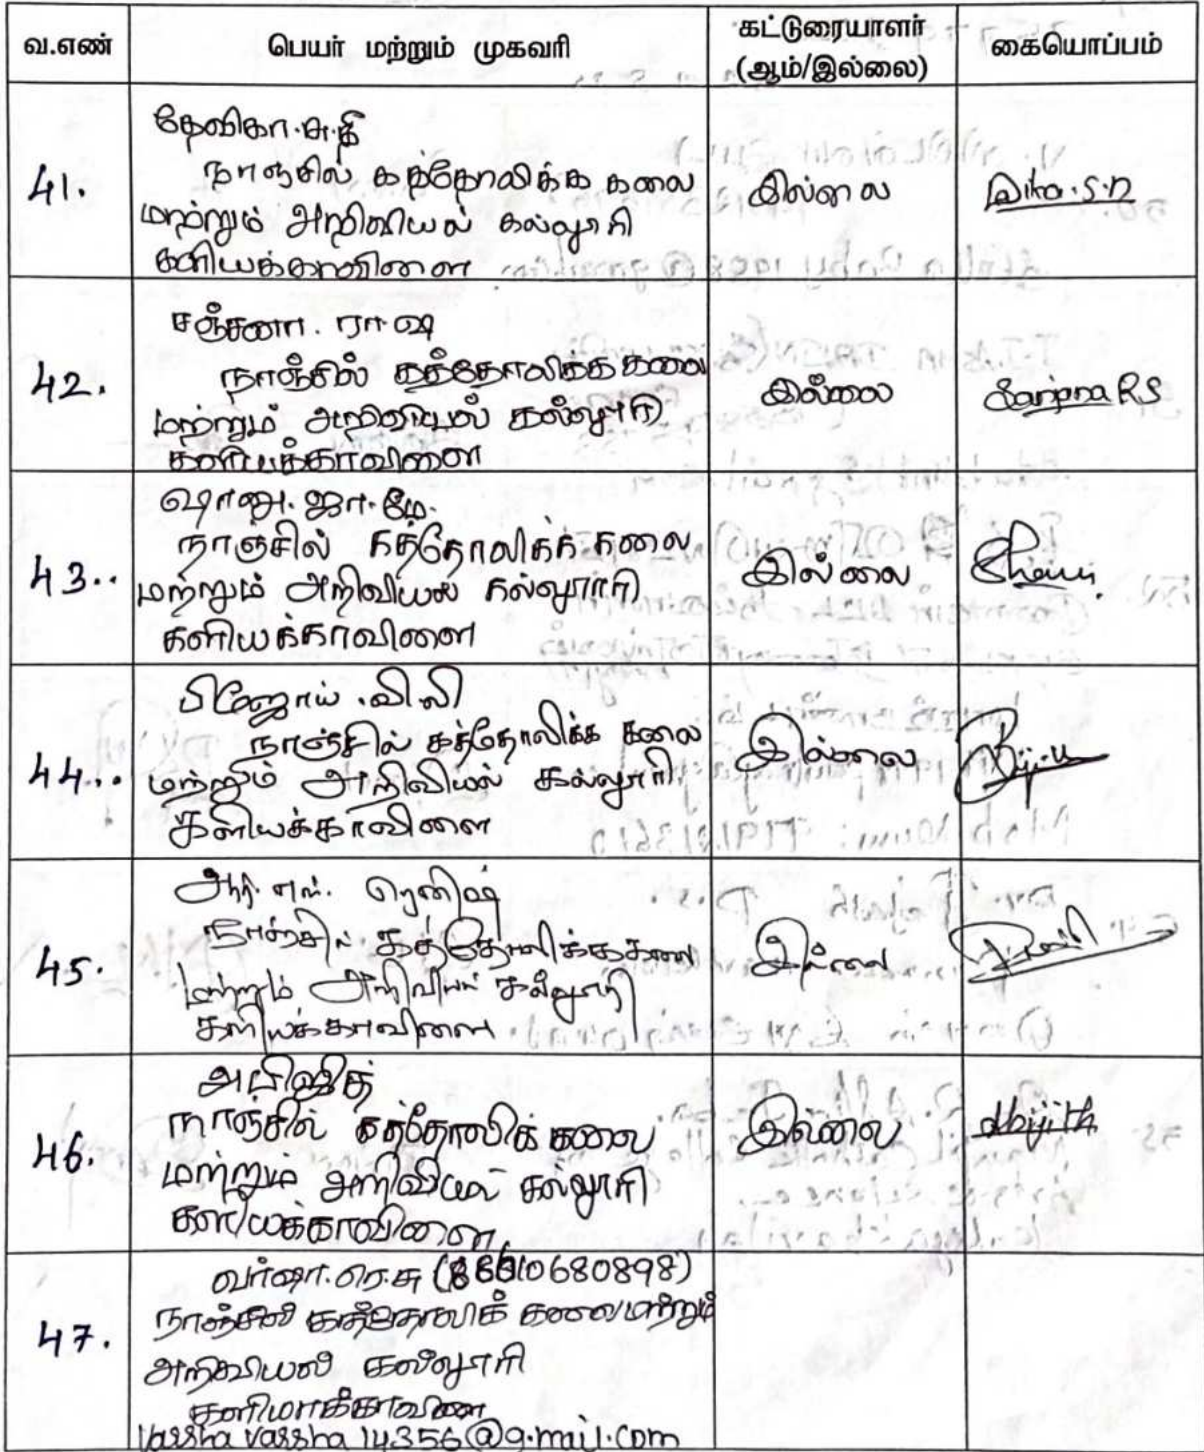 வ.எண் பெயர் மற்றும் முகவரி கட்டுரையாளர் (ஆம்/இல்லை) கையொப்பம்
41.
தேவிகா.சு.தி
நாஞ்சில் கத்தோலிக்க கலை
மற்றும் அறிவியல் கல்லூரி
களியக்காவிளை
இல்லை
42.
சஞ்சனா. ரா.ஷ
நாஞ்சில் கத்தோலிக்க கலை
மற்றும் அறிவியல் கல்லூரி
களியக்காவிளை
இல்லை
Sanjana R S
43..
ஷானு.ஜா.மே.
நாஞ்சில் கத்தோலிக்க கலை
மற்றும் அறிவியல் கல்லூரி
களியக்காவிளை
இல்லை
44..
பிஜோய்.வி.லி
நாஞ்சில் கத்தோலிக்க கலை
மற்றும் அறிவியல் கல்லூரி
களியக்காவிளை
இல்லை
45.
ஆர்.எஸ். ரெனிஷ்
நாஞ்சில் கத்தோலிக்க கலை
மற்றும் அறிவியல் கல்லூரி
களியக்காவிளை
இல்லை
46.
அபிஜித்
நாஞ்சில் கத்தோலிக் கலை
மற்றும் அறிவியல் கல்லூரி
களியக்காவிளை
இல்லை
Abijith
47.
வர்ஷா.ரெ.சு
நாஞ்சில் கத்தோலிக் கலை மற்றும்
அறிவியல் கல்லூரி
களிமாக்காவிளை
Varsha varsha 14356@g.mail.com